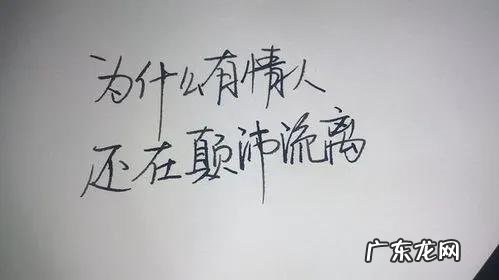 为什么有情人
还在颠沛流离
广东龙网